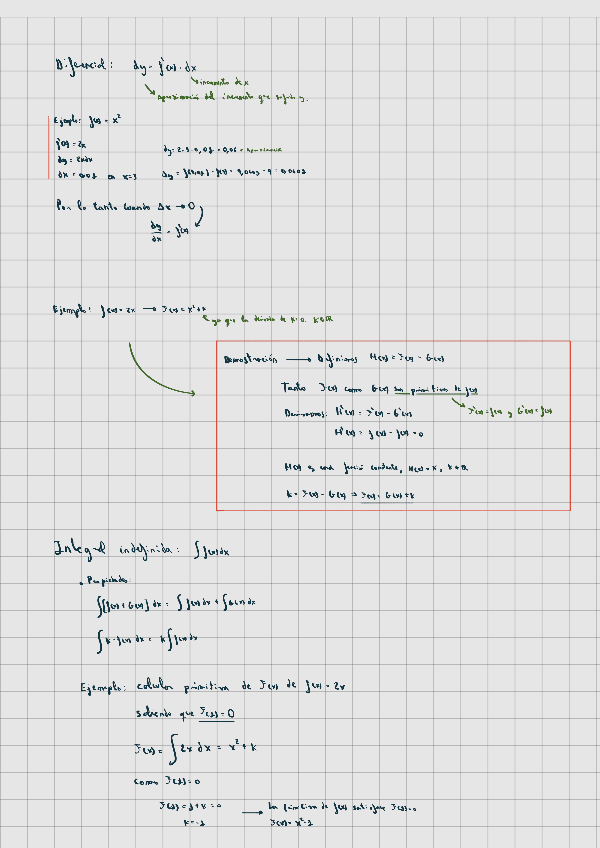 Diferencial: dy = f'(x) · dx
incremento de x
aproximación del incremento que sufrirá y.
Ejemplo: f(x) = x²
f'(x) = 2x
dy = 2xdx
dx = 0,01 en x=3
dy = 2·3·0,01 = 0,06
Δy = f(3,01) - f(3) = 9,0601 - 9 = 0,0601
Por lo tanto cuando Δx → 0
dy/dx = f'(x)
Ejemplo: f(x) = 2x → F(x) = x² + k
ya que la derivada de k = 0. k∈ℝ
Demostración → Definimos H(x) = F(x) - G(x)
Tanto F(x) como G(x) son primitivas de f(x)
F'(x) = f(x) y G'(x) = f(x)
Derivamos: H'(x) = F'(x) - G'(x)
H'(x) = f(x) - f(x) = 0
H(x) es una función constante, H(x) = k, k∈ℝ
k = F(x) - G(x) ⇒ F(x) = G(x) + k
Integral indefinida: ∫f(x)dx
• Propiedades:
∫[f(x) + G(x)] dx = ∫f(x) dx + ∫G(x) dx
∫k·f(x) dx = k∫f(x) dx
Ejemplo: calcular primitiva de F(x) de f(x) = 2x
sabiendo que F(1) = 0
F(x) = ∫2x dx = x² + k
como F(1) = 0
F(1) = 1 + k = 0 → La primitiva de f(x) satisface F(1) = 0
k = -1 F(x) = x² - 1